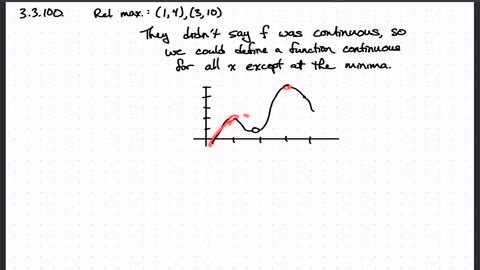 3.3.100. Rel max.: (1,4), (3,10)
They didn't say f was continuous, so
we could define a function continuous
for all x except at the minima.